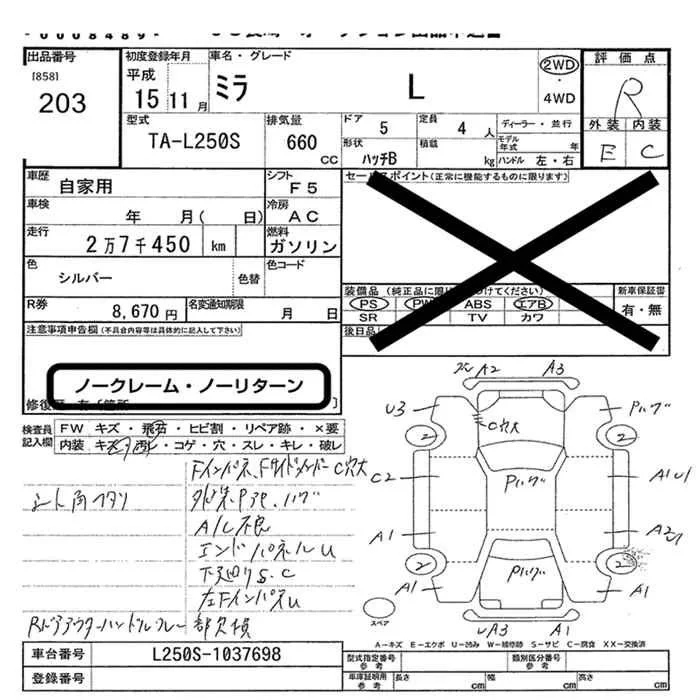 出品番号
[858]
203
初度登録年月
平成
15 11月
車名・グレード
ミラ L
2WD
・
4WD
評価点
R
外装 内装
E C
型式
TA-L250S
排気量
660
CC
ドア
5
定員
4 人
ディーラー・並行
形状
ハッチB
積載
kg
モデル年式 年
ハンドル 左・右
車歴
自家用
シフト
F5
セールスポイント(正常に機能するものに限ります)
車検
年 月( 日)
冷房
AC
走行
2万7千450 km
燃料
ガソリン
色
シルバー
色替
色コード
R券
8,670円
名変通知期限
月 日
装備品
PS PW ABS エアB
SR TV カワ
新車保証書
有・無
後日品
注意事項申告欄(不具合内容等は具体的に記入して下さい)
ノークレーム・ノーリターン
検査員記入欄
FW キズ・飛石・ヒビ割・リペア跡・×要
内装 キズ・汚レ・コゲ・穴・スレ・キレ・破レ
Fインパネ、Fサイドメンバー C穴大
A/C不良
エンドパネルU
下廻りS.C
左FインパネU
RドアアウターハンドルカバーA部欠損
A2 A3
U3
C穴大
Pハゲ
2 2
C2
Pハゲ
A1
A1
A2
2 2
A1
Pハゲ
A1
UA3 A1
スペア
A－キズ E－エクボ U－凹み W－補修跡 S－サビ C－腐食 XX－交換済
車台番号
L250S-1037698
登録番号
型式指定番号
参考
類別区分番号
参考
車庫証明用
参考
長さ cm
幅 cm
高さ cm